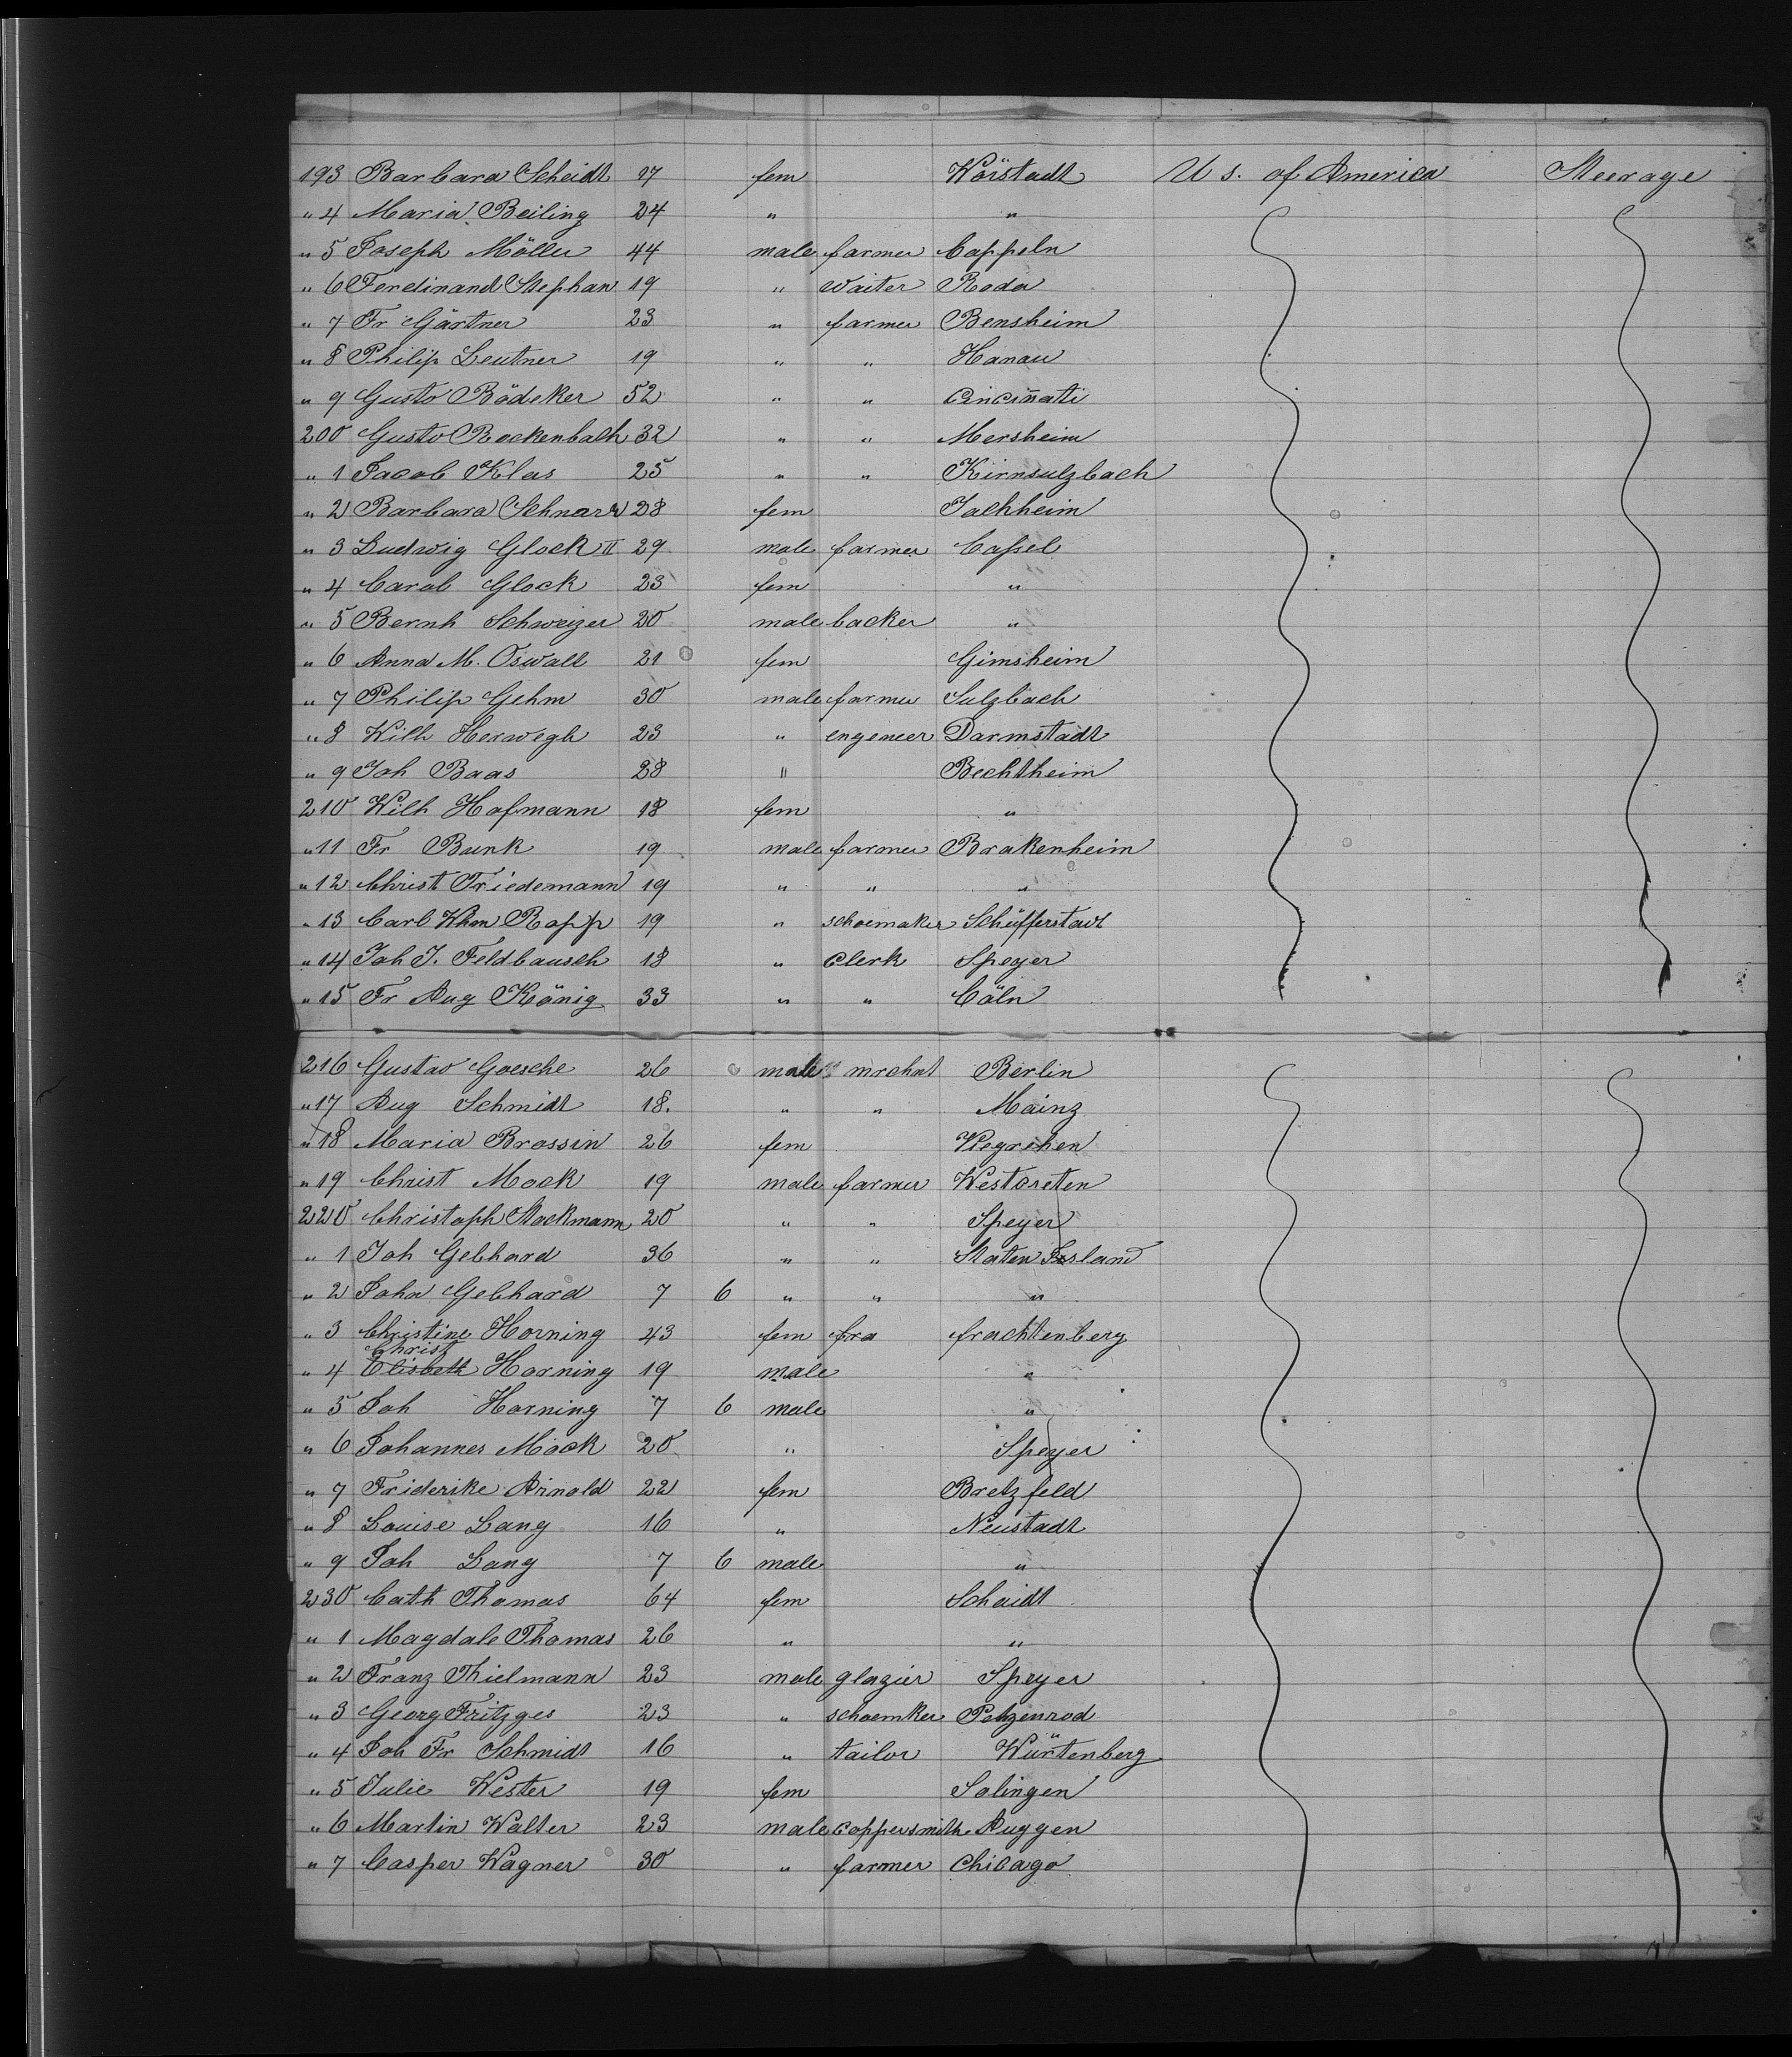 193 Barbara Scheidt 27 fem Wörstadt U s. of America Steerage
" 4 Maria Beiling 24 " "
" 5 Joseph Möller 44 male farmer Cappeln
" 6 Ferdinand Stephan 19 " waiter Roda
" 7 Fr Gärtner 23 " farmer Bensheim
" 8 Philip Leutner 19 " " Hanau
" 9 Gusto Bödeker 52 " " Cincin̄ati
200 Gusto Rockenbach 32 " " Mersheim
" 1 Jacob Klas 25 " " Kirnsulzbach
" 2 Barbara Schnarr 28 fem Jachheim
" 3 Ludwig Glock II 29 male farmer Cassel
" 4 Carol Glock 23 fem "
" 5 Bernh Schweizer 20 male backer "
" 6 Anna M. Oswall 21 fem Gimsheim
" 7 Philip Gehm 30 male farmer Sulzbach
" 8 Wilh Herwegh 23 " engeneer Darmstadt
" 9 Joh Baas 28 " Bechtheim
210 Wilh Hofmann 18 fem "
" 11 Fr Bunk 19 male farmer Brakenheim
" 12 Christ Friedemann 19 " " "
" 13 Carl Whm Rapp 19 " schoemaker Schüfferstadt
" 14 Joh J. Feldbausch 18 " Clerk Speyer
" 15 Fr Aug König 33 " " Cöln
216 Gustav Goesche 26 male mrchat Berlin
" 17 Aug Schmidt 18. " " Mainz
" 18 Maria Brossin 26 fem
" 19 Christ Mock 19 male farmer Westoreten
220 Christoph Stockmann 20 " " Speyer
" 1 Joh Gebhard 36 " " Staten Island
" 2 John Gebhard 7 6 " " "
" 3 Christine Horning 43 fem fra frachtenberg
Christ
" 4 Elisbeth Horning 19 male "
" 5 Joh Horning 7 6 male "
" 6 Johannes Mock 20 " Speyer
" 7 Friderike Arnold 22 fem Bretzfeld
" 8 Louise Lang 16 " Neustadt
" 9 Joh Lang 7 6 male "
230 Cath Thomas 64 fem Schaidt
" 1 Magdale Thomas 26 " "
" 2 Franz Thielmann 23 male glazier Speyer
" 3 Georg Fritzges 23 " schoemker Petzenrod
" 4 Joh Fr Schmidt 16 " tailor Würtenberg
" 5 Julie Wester 19 fem Solingen
" 6 Martin Walter 23 male coppersmith Auggen
" 7 Casper Wagner 30 " farmer Chicago